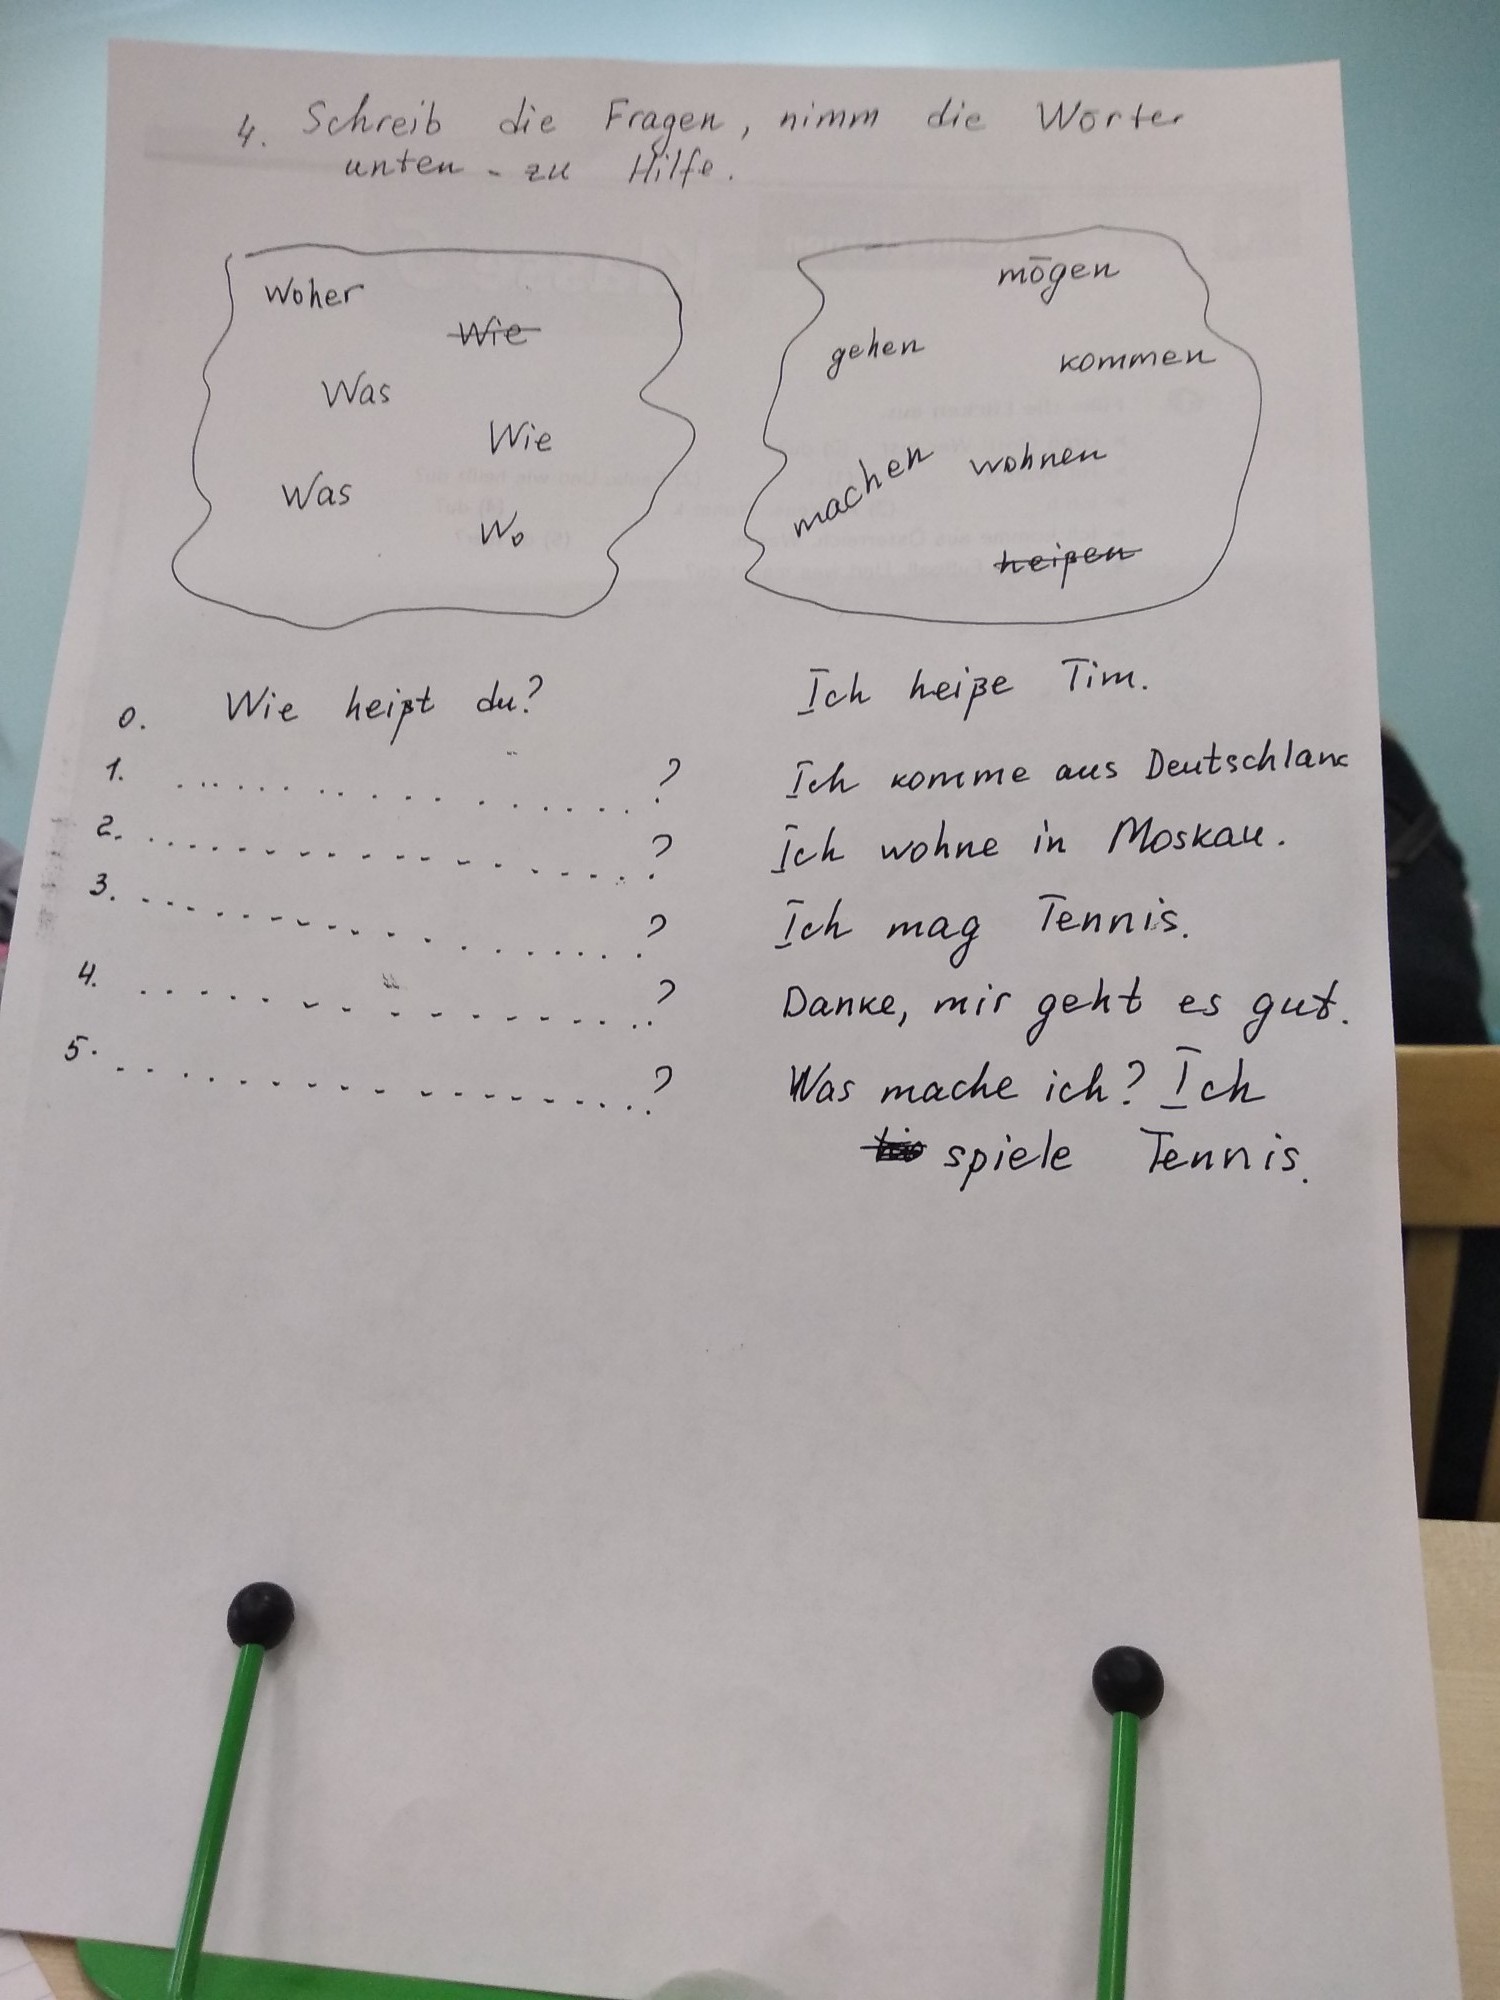 4. Schreib die Fragen, nimm die Wörter
unten - zu Hilfe.
Woher
Wie
Was
Wie
Was
Wo
mögen
gehen
kommen
machen
wohnen
heißen
0. Wie heißt du? Ich heiße Tim.
1. ..................? Ich komme aus Deutschland
2. ..................? Ich wohne in Moskau.
3. ..................? Ich mag Tennis.
4. ..................? Danke, mir geht es gut.
5. ..................? Was mache ich? Ich
spiele Tennis.